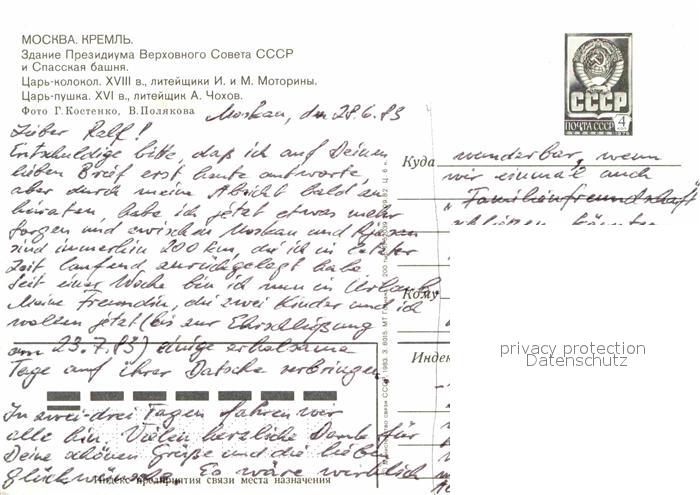 МОСКВА. КРЕМЛЬ.
Здание Президиума Верховного Совета СССР
и Спасская башня.
Царь-колокол. XVIII в., литейщики И. и М. Моторины.
Царь-пушка. XVI в., литейщик А. Чохов.
Фото Г. Костенко, В. Полякова
СССР
ПОЧТА СССР
4
Moskau, den 28.6.83
Lieber Ralf!
Entschuldige bitte, daß ich auf Deinen
lieben Brief erst heute antworte,
aber durch meine Absicht bald zu
heiraten, habe ich jetzt etwas mehr
Sorgen und zwischen Moskau und Rjasan
sind immerhin 200 km, die ich in letzter
Zeit laufend zurückgelegt habe.
Seit einer Woche bin ich nun in Urlaub.
Meine Freundin, die zwei Kinder und ich
wollen jetzt (bis zur Eheschließung
am 23.7.83) einige erholsame
Tage auf ihrer Datsche verbringen.
In zwei-drei Tagen fahren wir
alle hin. Vielen herzliche Dank für
Deine schönen Grüße und die lieben
Glückwünsche. Es wäre wirklich
Индекс предприятия связи места назначения
Куда
wunderbar, wenn
wir einmal auch
"Familienfreundschaft"
schließen könnten
Кому
Индекс
privacy protection
Datenschutz